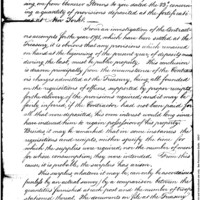 ing one from Ebenezer Stevens Esq. dated the 23rd.
ing a quantity of provisions deposited at the fortificati-
ons at New York.
From an investigation of the Contract-
ors accompts for the year 1794, which have been settled at the
Treasury, it is obvious that any provisions which remained
on hand at the beginning of the present year, if deposited
during the last, must be public property. This conclusion
is drawn principally from the circumstance of the Contract-
ors charges admitted at the Treasury, being all founded
on the requisitions of officers, supported by proper receipts
for the delivery of the provisions required, and it may be
fairly inferred, if the Contractor had not been paid for
all that was deposited, his own interest would long since
have induced him to regain possession of this property.
Besides it may be remarked that in some instances the
requisitions and receipts, neither specify the term for
which the supplies are required, nor the number of men
for whose consumption, they were intended. From this
cause, it is probable, the surplus has arisen.
This surplus, whatever it may be, can only be ascertained
justly by an actual survey, by a comparison between the
quantities furnished at each post and the number of troops
stationed thereat. The documents on files at the Treasury